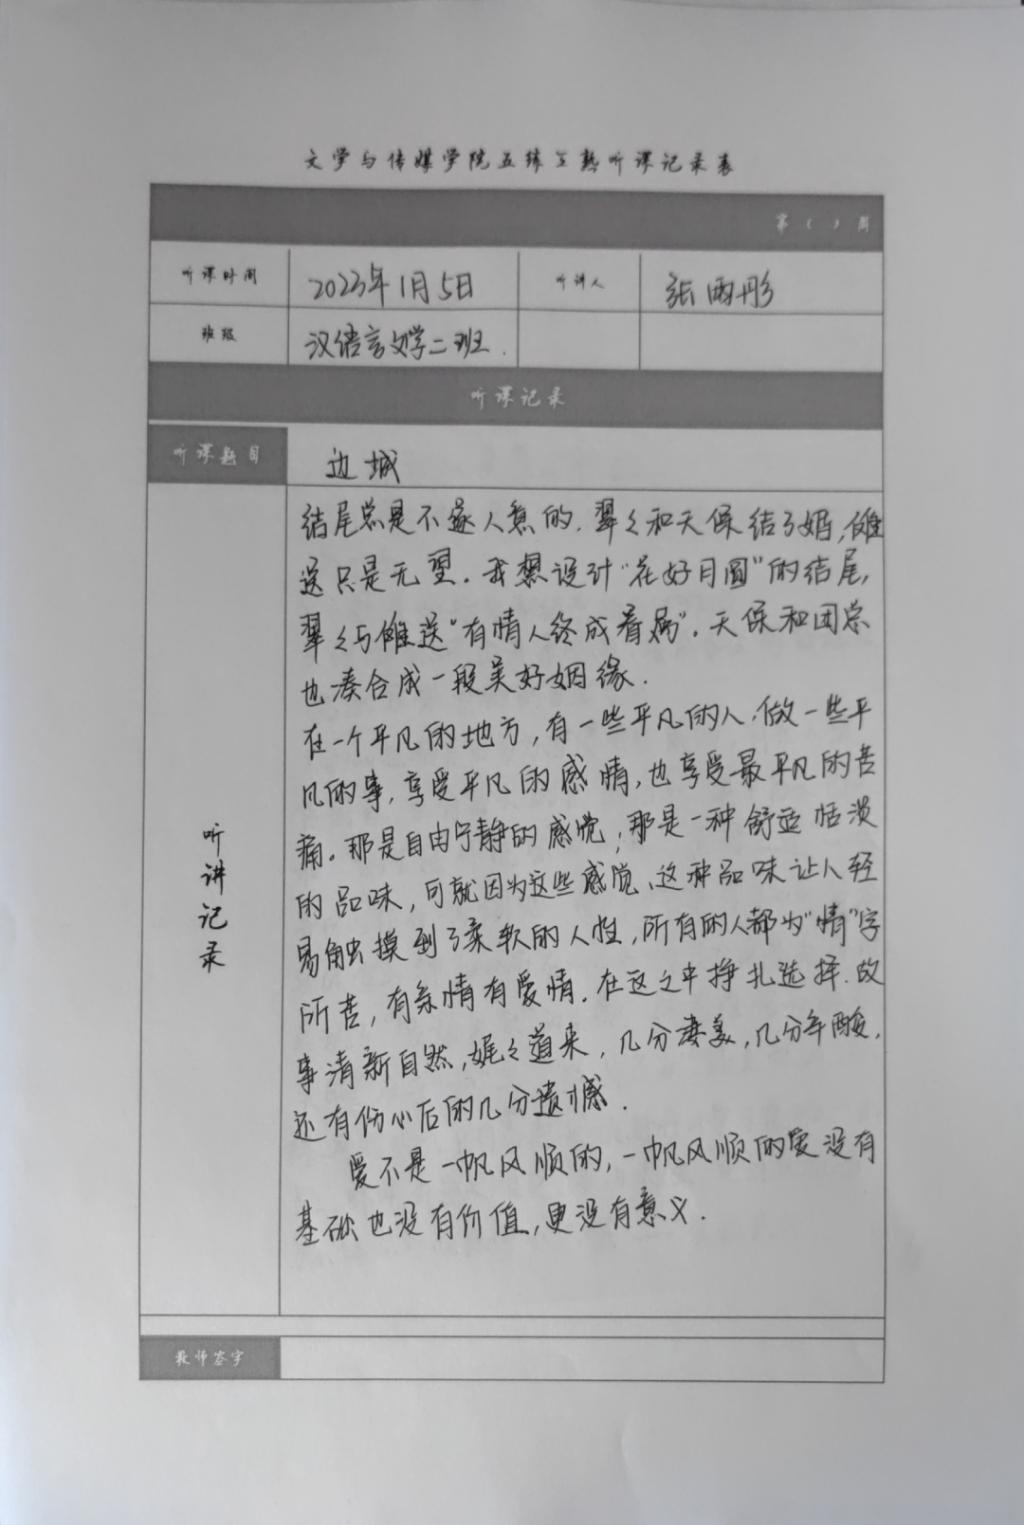 文学与传媒学院五练五熟听课记录表
第 ( ) 周
听课时间 2023年1月5日 听讲人 张雨彤
班级 汉语言文学二班.
听课记录
听课题目 边城
听讲记录
结尾总是不遂人意的.翠々和天保结了婚,傩
送只是无望.我想设计"花好月圆"的结尾,
翠々与傩送"有情人终成眷属".天保和团总
也凑合成一段美好姻缘.
在一个平凡的地方,有一些平凡的人.做一些平
凡的事,享受平凡的感情,也享受最平凡的苦
痛。那是自由宁静的感觉,那是一种舒适恬淡
的品味,可就因为这些感觉、这种品味让人轻
易触摸到了柔软的人性,所有的人都为"情"字
所苦,有亲情有爱情.在这之中挣扎选择.故
事清新自然,娓々道来,几分凄美,几分辛酸,
还有伤心后的几分遗憾.
爱不是一帆风顺的,一帆风顺的爱没有
基础也没有价值,更没有意义.
教师签字